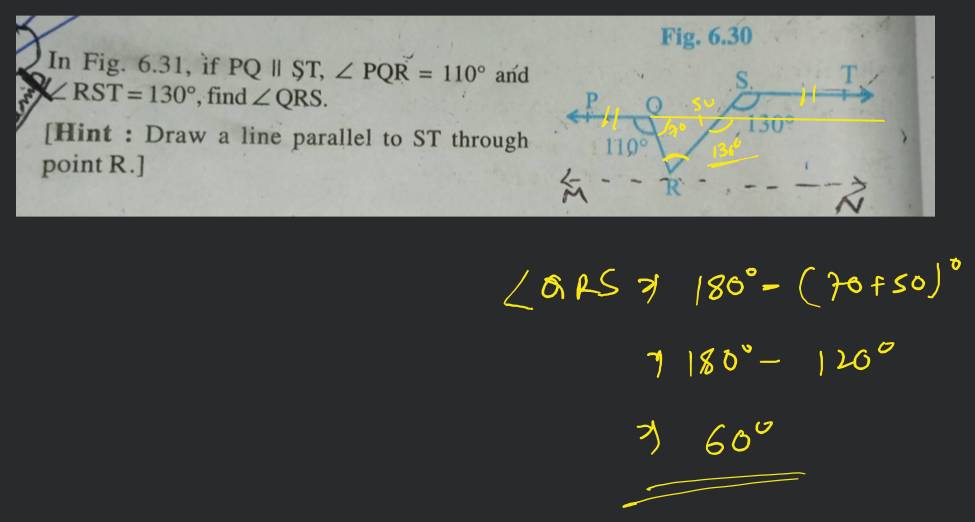 Fig. 6.30
In Fig. 6.31, if PQ || ST, ∠ PQR = 110° and
∠ RST = 130°, find ∠ QRS.
[Hint : Draw a line parallel to ST through
point R.]
S T
P Q 50
70 130°
110° 130°
R
M N
∠QRS ⇒ 180° - (70+50)°
⇒ 180° - 120°
⇒ 60°